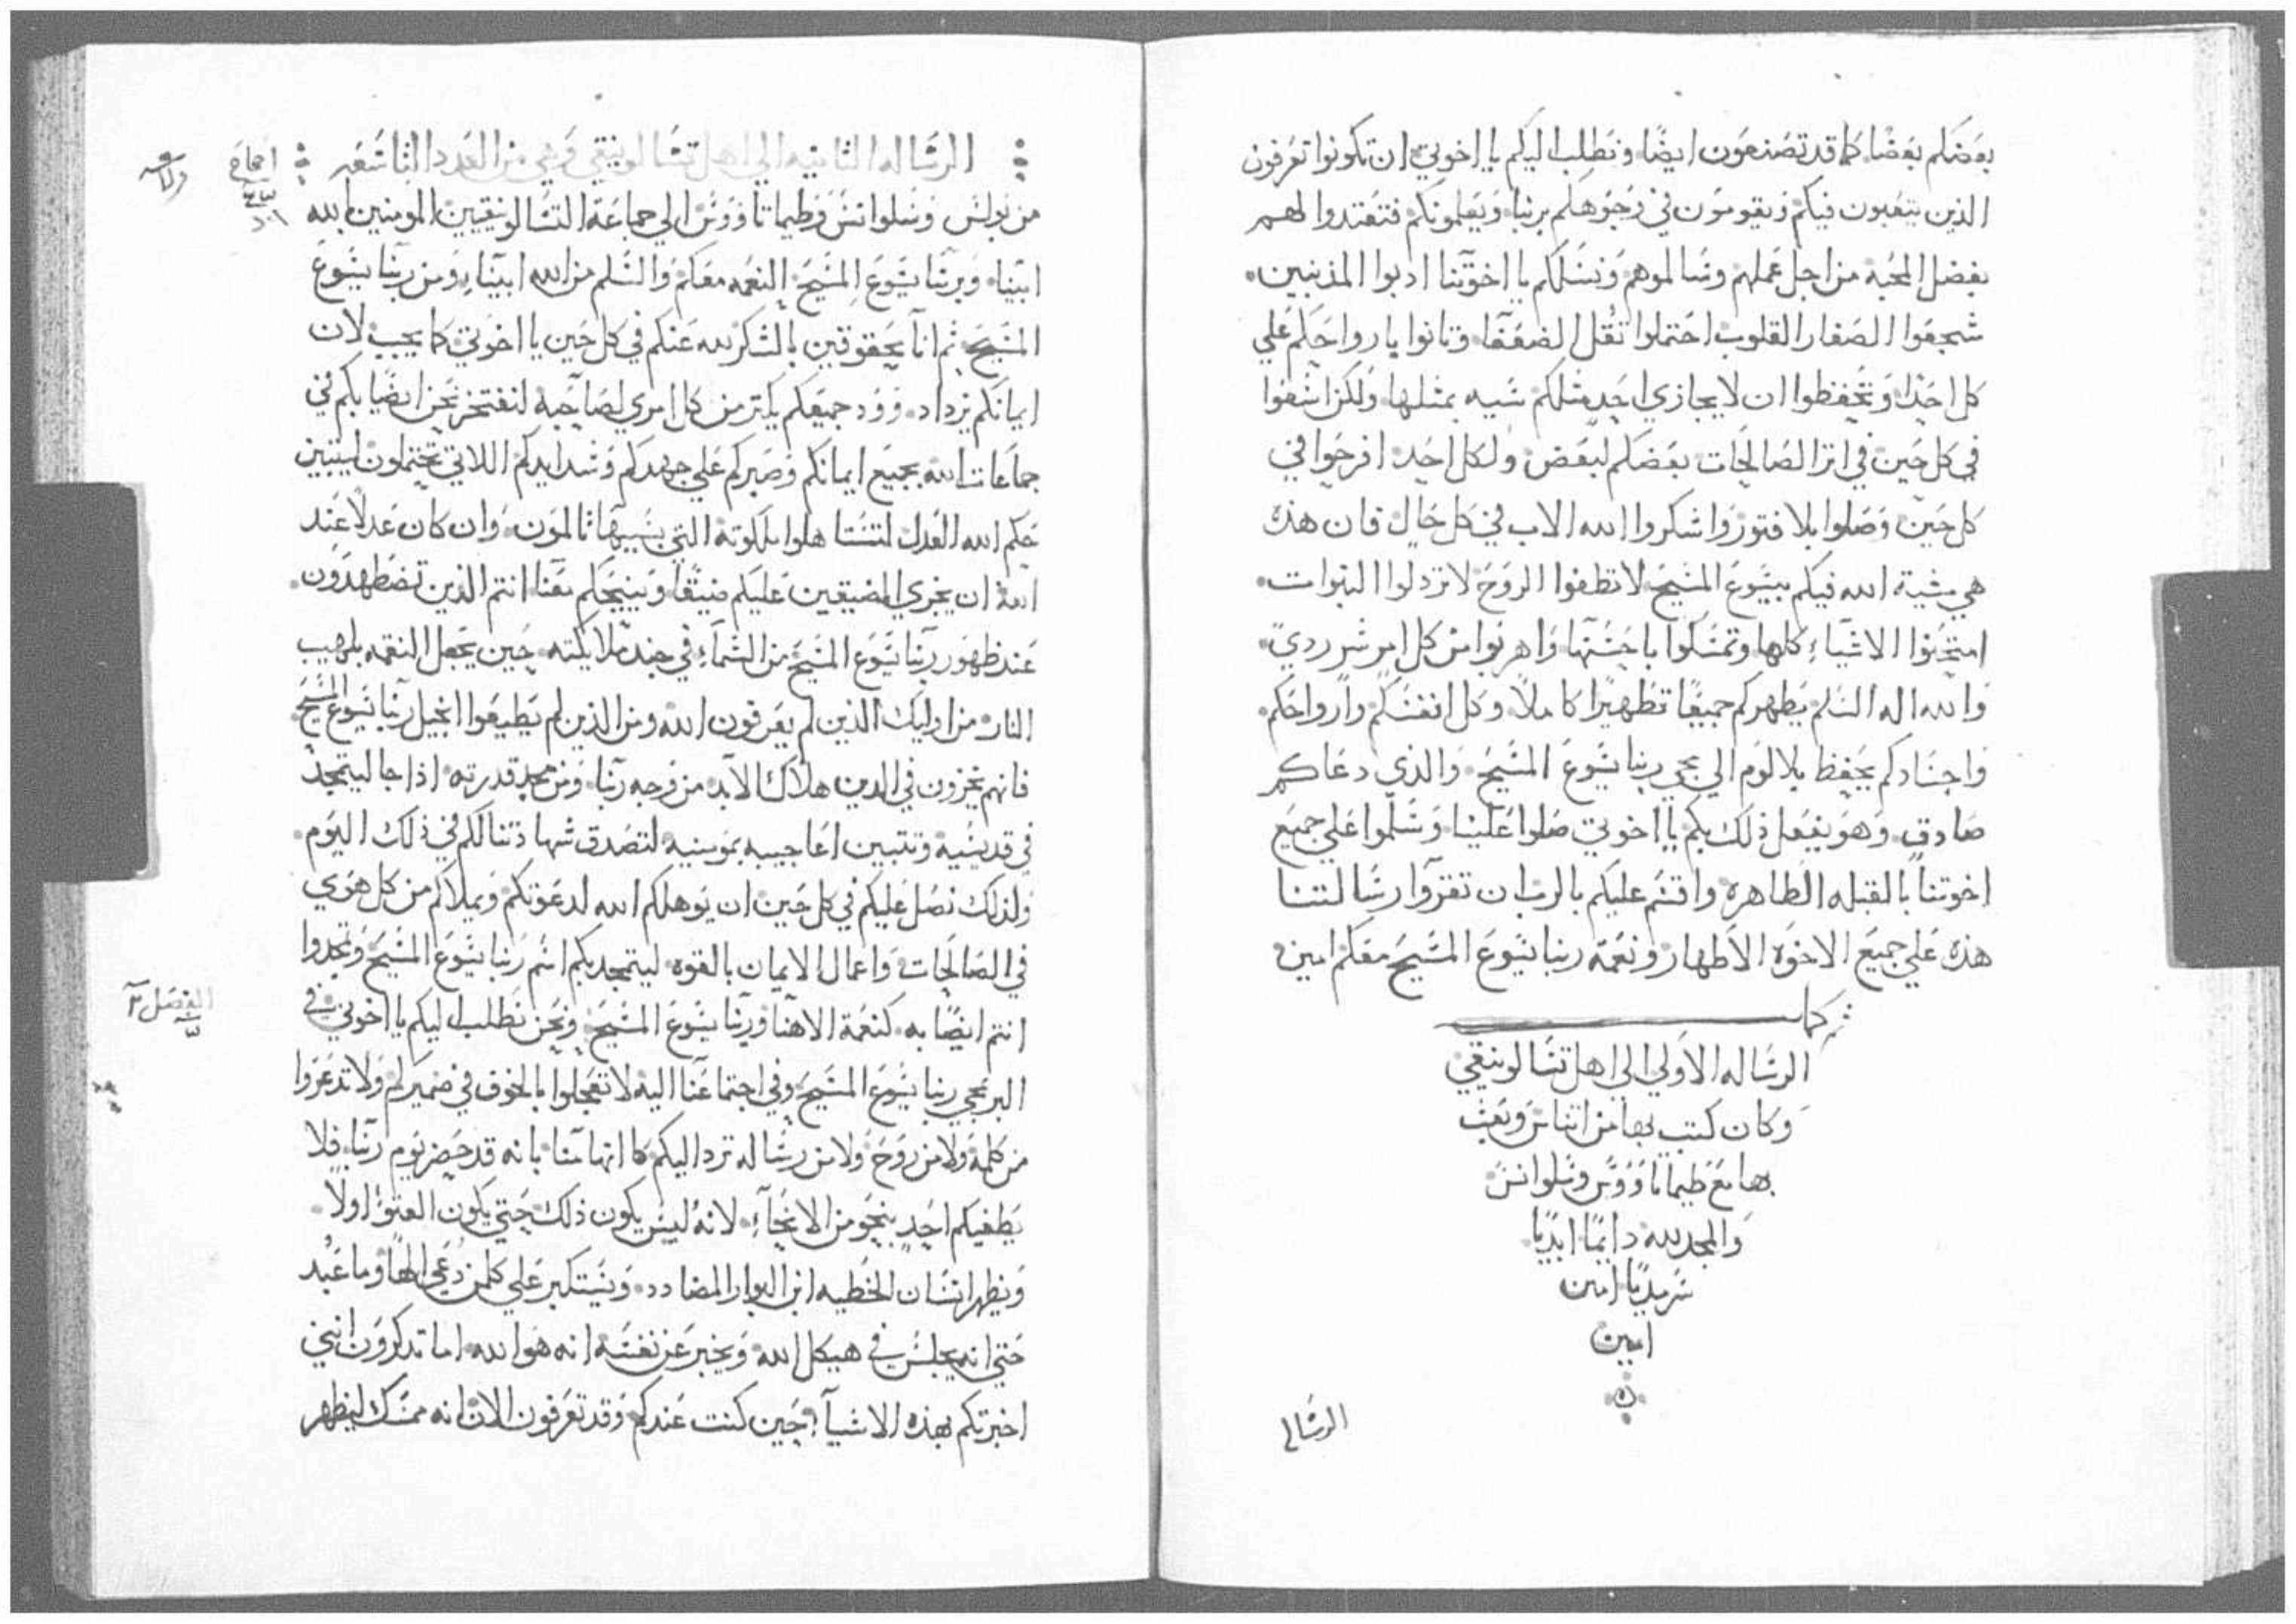 بعضكم بعضا كما قد تصنعون ايضا ونطلب اليكم يا اخوتي ان تكونوا تعرفون
الذين يتعبون فيكم ويقومون في وجوهكم بربنا ويعلمونكم فتعتدوا لهم
بفضل المحبه من اجل عملهم وسالموهم ونسلكم يا اخوتنا ادبوا المذنبين
شجعوا الصغار القلوب احتملوا ثقل الضعفا وتانوا بارواحكم علي
كل احد وتحفظوا ان لا يجازي احد منكم سيه بمثلها ولكن اسعوا
في كل حين في اثر الصالحات بعضكم لبعض ولكل احد افرحوا في
كل حين وصلوا بلا فتور واشكروا الله الاب في كل حال فان هذه
هي مشية الله فيكم بيسوع المسيح لا تطفوا الروح لا تزدلوا النبوات
امتحنوا الاشياء كلها وتمسكوا باحسنها واهربوا من كل امر شر ردي
والله اله السلم يطهركم جميعا تطهيرا كاملا وكل انفسكم وارواحكم
واجسادكم يحفظ بلا لوم الي مجي ربنا يسوع المسيح والذي دعاكم
صادق وهو يفعل ذلك بكم يا اخوتي صلوا علينا وسلموا علي جميع
اخوتنا بالقبله الطاهره واقسم عليكم بالرب ان تقروا رسالتنا
هذه علي جميع الاخوه الاطهار ونعمة ربنا يسوع المسيح معكم امين
ثم كمل
الرساله الاولي الي اهل تسالونيقي
وكان كتب بها من اثناس وبعث
بها مع طيماتاووس وسلوانس
والمجد لله دايما ابديا
سرمديا امين
امين
الرسالـ
الرساله الثانيه الي اهل تسالونيقي وهي من العدد التاسعه
من بولس وسلوانس وطيماتاووس الي جماعة التسالونيقيين المومنين بالله
ابينا وبربنا يسوع المسيح النعمه معكم والسلم من الله ابينا ومن ربنا يسوع
المسيح ثم انا يحقوقين بالشكر لله عنكم في كل حين يا اخوتي كما يجب لان
ايمانكم يزداد وود جميعكم يكثر من كل امري لصاحبه لنفتخر نحن ايضا بكم في
جماعات الله بجميع ايمانكم وصبركم علي جهدكم وشدايدكم اللاتي تحتملون ليتبين
حكم الله العدل لتستاهلوا ملكوته التي بسببها تالمون وان كان عدلا عند
الله ان يجزي المضيقين عليكم ضيقا وينيحكم معنا انتم الذين تضطهدون
عند ظهور ربنا يسوع المسيح من السماء في جند ملايكته حين يجعل النقمه بلهيب
النار من اوليك الذين لم يعرفون الله ومن الذين لم يطيعوا انجيل ربنا يسوع المسيح
فانهم يجزون في الدين هلاك الابد من وجه ربنا ومن مجد قدرته اذا جا ليتمجد
في قديسيه وتتبين اعاجيبه بمومنيه لتصدق شهادتنا لكم في ذلك اليوم
ولذلك نصل عليكم في كل حين ان يوهلكم الله لدعوتكم ويملاكم من كل هوي
في الصالحات واعمال الايمان بالقوه ليتمجد بكم اسم ربنا يسوع المسيح وتمجدوا
انتم ايضا به كنعمة الاهنا وربنا يسوع المسيح ونحن نطلب اليكم يا اخوتي في
مجي ربنا يسوع المسيح وفي اجتماعنا اليه لا تعجلوا بالخوف في ضميركم ولا تدعروا
من كلمه ولا من روح ولا من رساله ترد اليكم كما انها منا بانه قد حضر يوم ربنا فلا
يطغيكم احد بنحو من الانحاء لانه ليس يكون ذلك حتي يكون العتو اولا
ويظهر انسان الخطيه ابن البوار المضادد ويستكبر علي كلمن دعي الها وما عبد
حتي انه يجلس في هيكل الله ويخبر عن نفسه انه هو الله اما تدكرون انني
اخبرتكم بهذه الاشياء حين كنت عندكم وقد تعرفون الان انه ممسك ليظهر
الفصل ٢